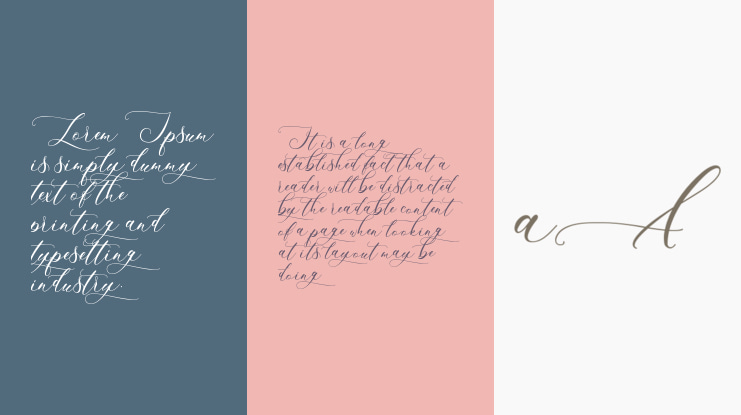 Lorem Ipsum
is simply dummy
text of the
printing and
typesetting
industry.
It is a long
established fact that a
reader will be distracted
by the readable content
of a page when looking
at its layout may be
doing
a A